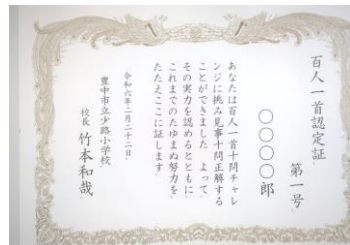 百人一首認定証
第一号
〇〇〇〇郎
あなたは百人一首十問チャレ
ンジに挑み見事十問正解する
ことができました よって、
その実力を認めるとともに
これまでのたゆまぬ努力を
たたえここに証します
令和六年二月二十二日
豊中市立少路小学校
校長 竹本和哉